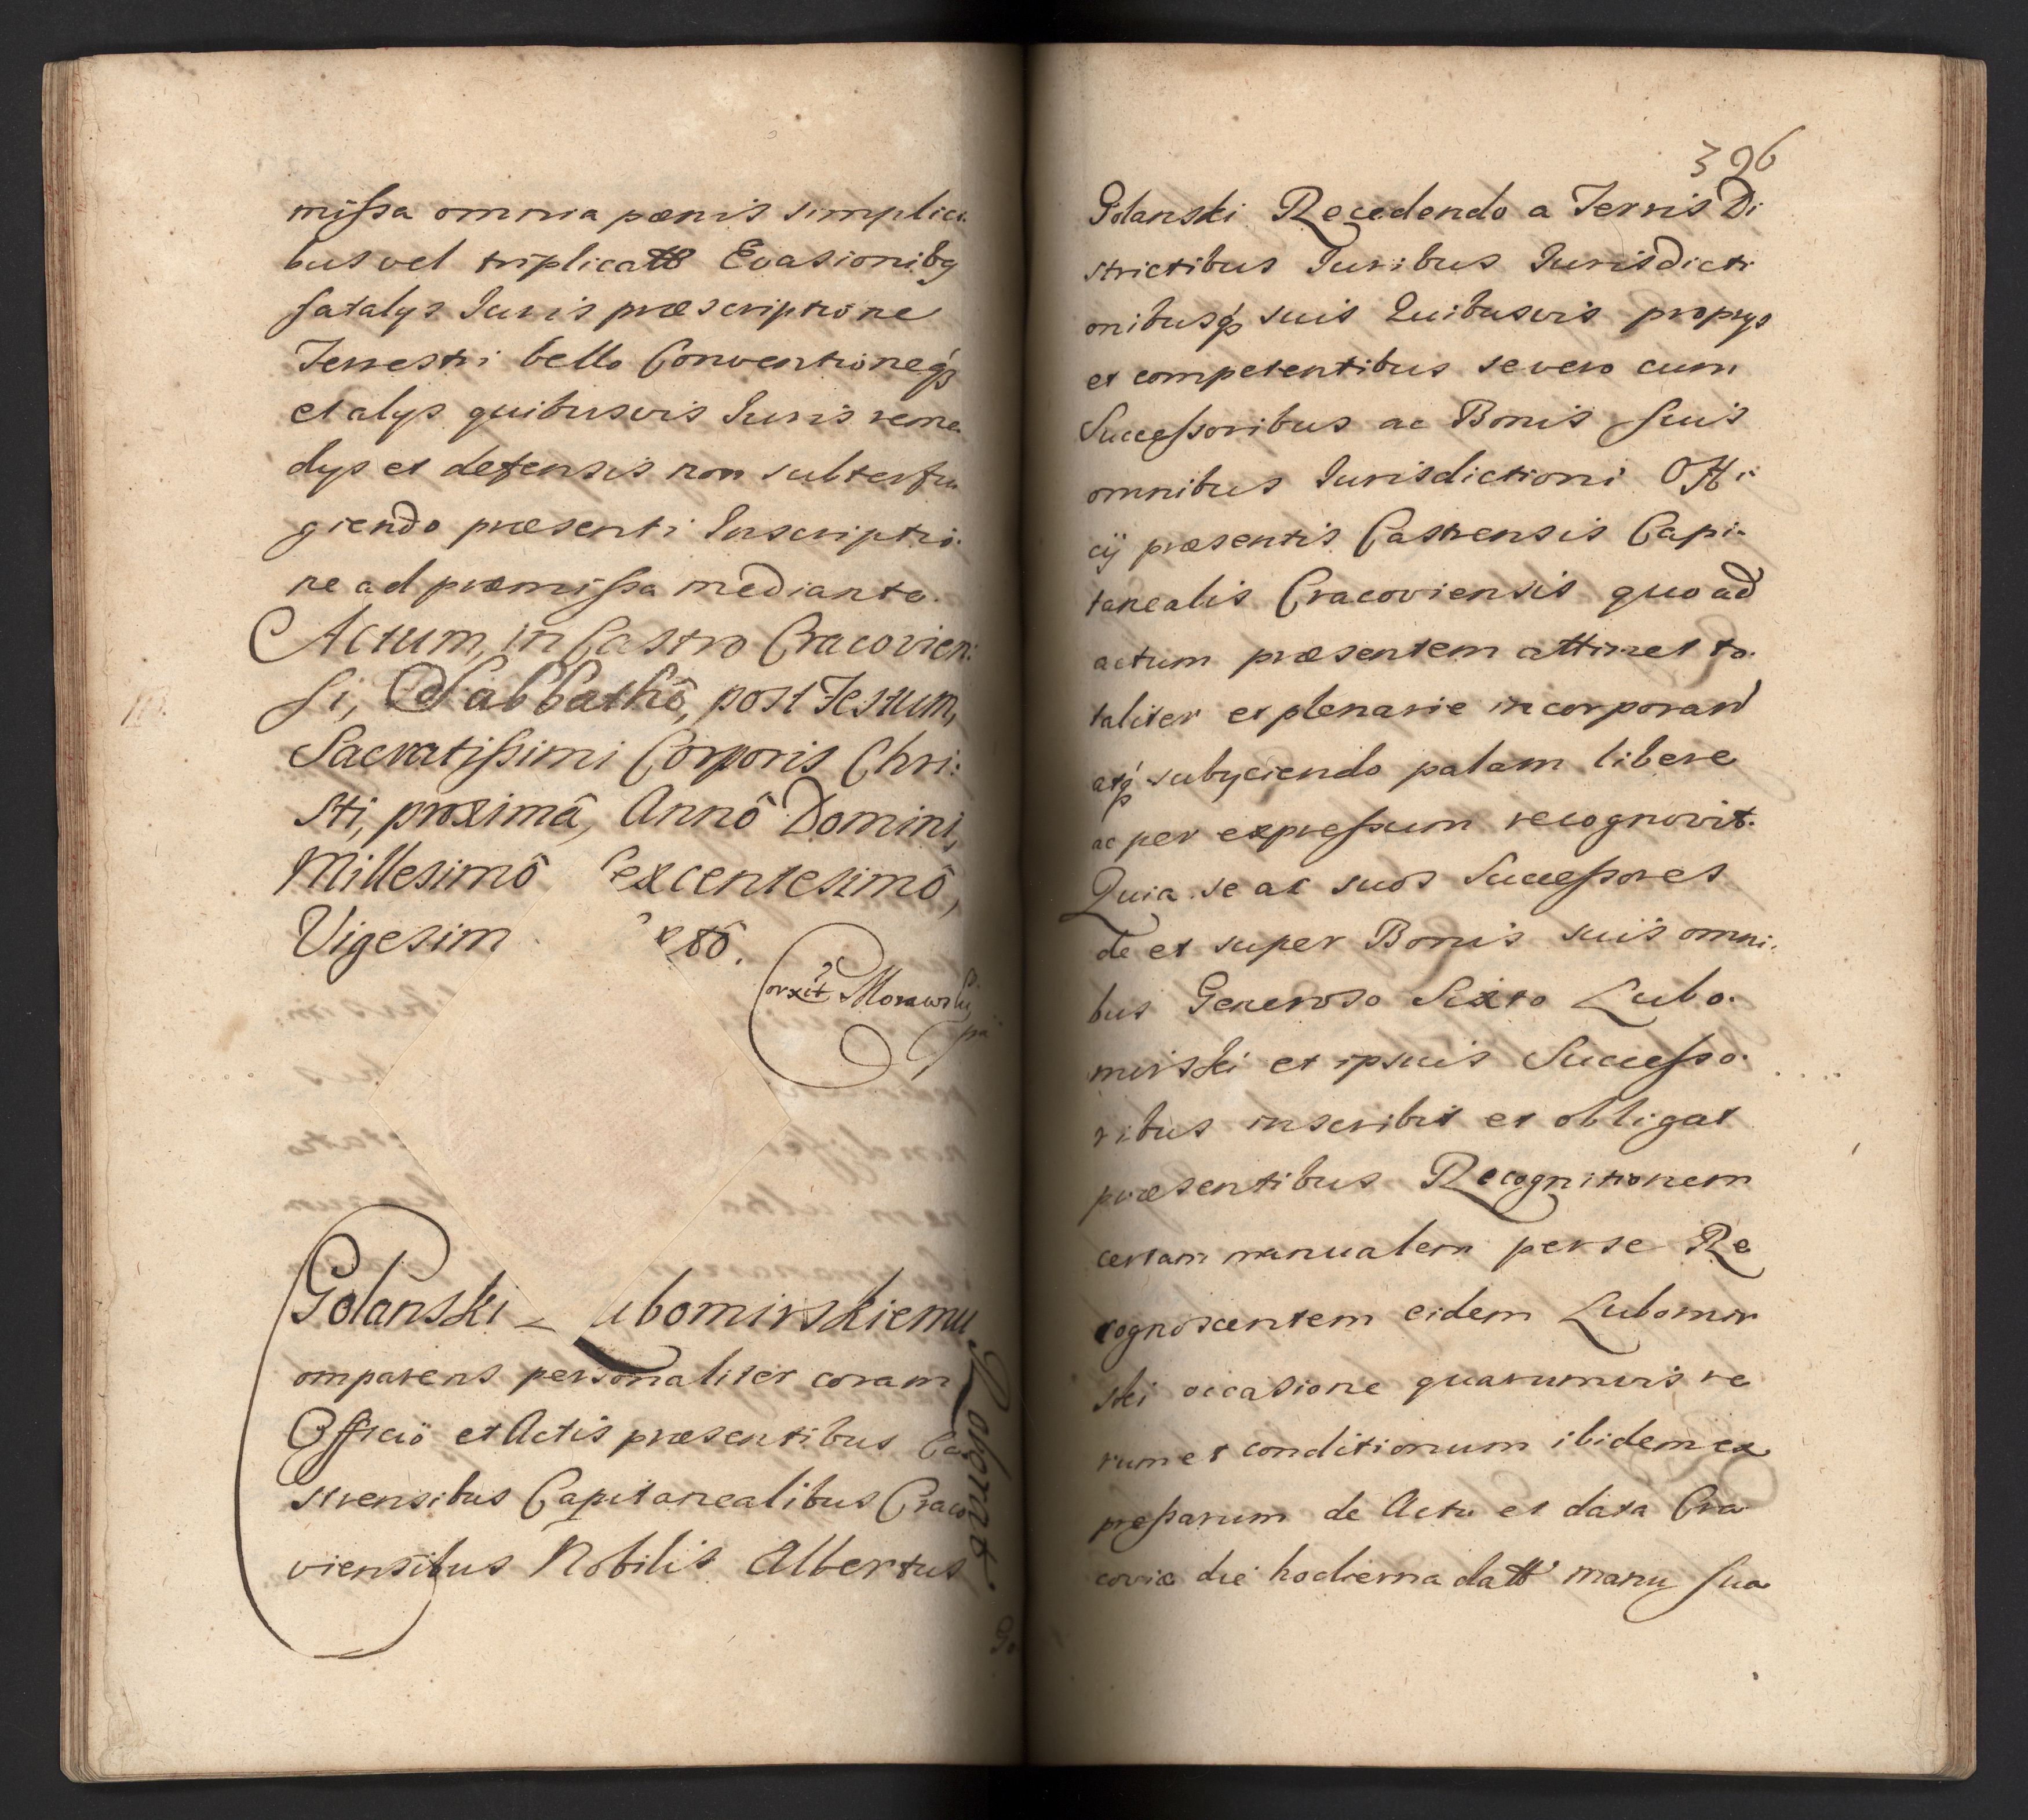 missa omnia pœnis simplici
bus vel triplicatt Evasionibq
fatalys Iuris præscriptione
Terrestri bello Conventioneq
et alys quibusvis Iuris reme
dys et defensis non subterfu
giendo præsenti Inscriptio
ne ad præmissa mediante.
Actum, in Castro Cracovien:
si, Sabbathô, post Festum,
Sacratissimi Corporis Chri:
sti, proximâ, Annô Domini,
Millesimô Sexcentesimô,
Vigesim
Corxit Morawski
Golanski Lubomirskiemu
omparens personaliter coram
Officiô et Actis præsentibus Ca
strensibus Capitanealibus Craco
viensibus Nobilis Albertus
Recognit.
Go
396
Golanski Recedendo a Terris Di
strictibus Iuribus Iurisdicti
onibusq suis Quibusvis proprys
et competentibus se vero cum
Successoribus ac Bonis suis
omnibus Iurisdictioni Offi:
cij præsentis Castrensis Capi:
tanealis Cracoviensis quoad
actum præsentem attinet to.
taliter et plenarie incorporand
atq subyciendo palam libere
ac per expressum recognovit.
Quia se ac suos Successores
de et super Bonis suis omni.
bus Generoso Sixto Lubo.
mirski et ipsius Successo.
ribus inscribit et obligat
præsentibus Recognitionem
certam manualem per se Re
cognoscentem eidem Lubomir
ski occasione quarumvis re
rum et conditionum ibidem ex
pressarum de Actu et data Cra
coviæ die hodierna datt manu sua